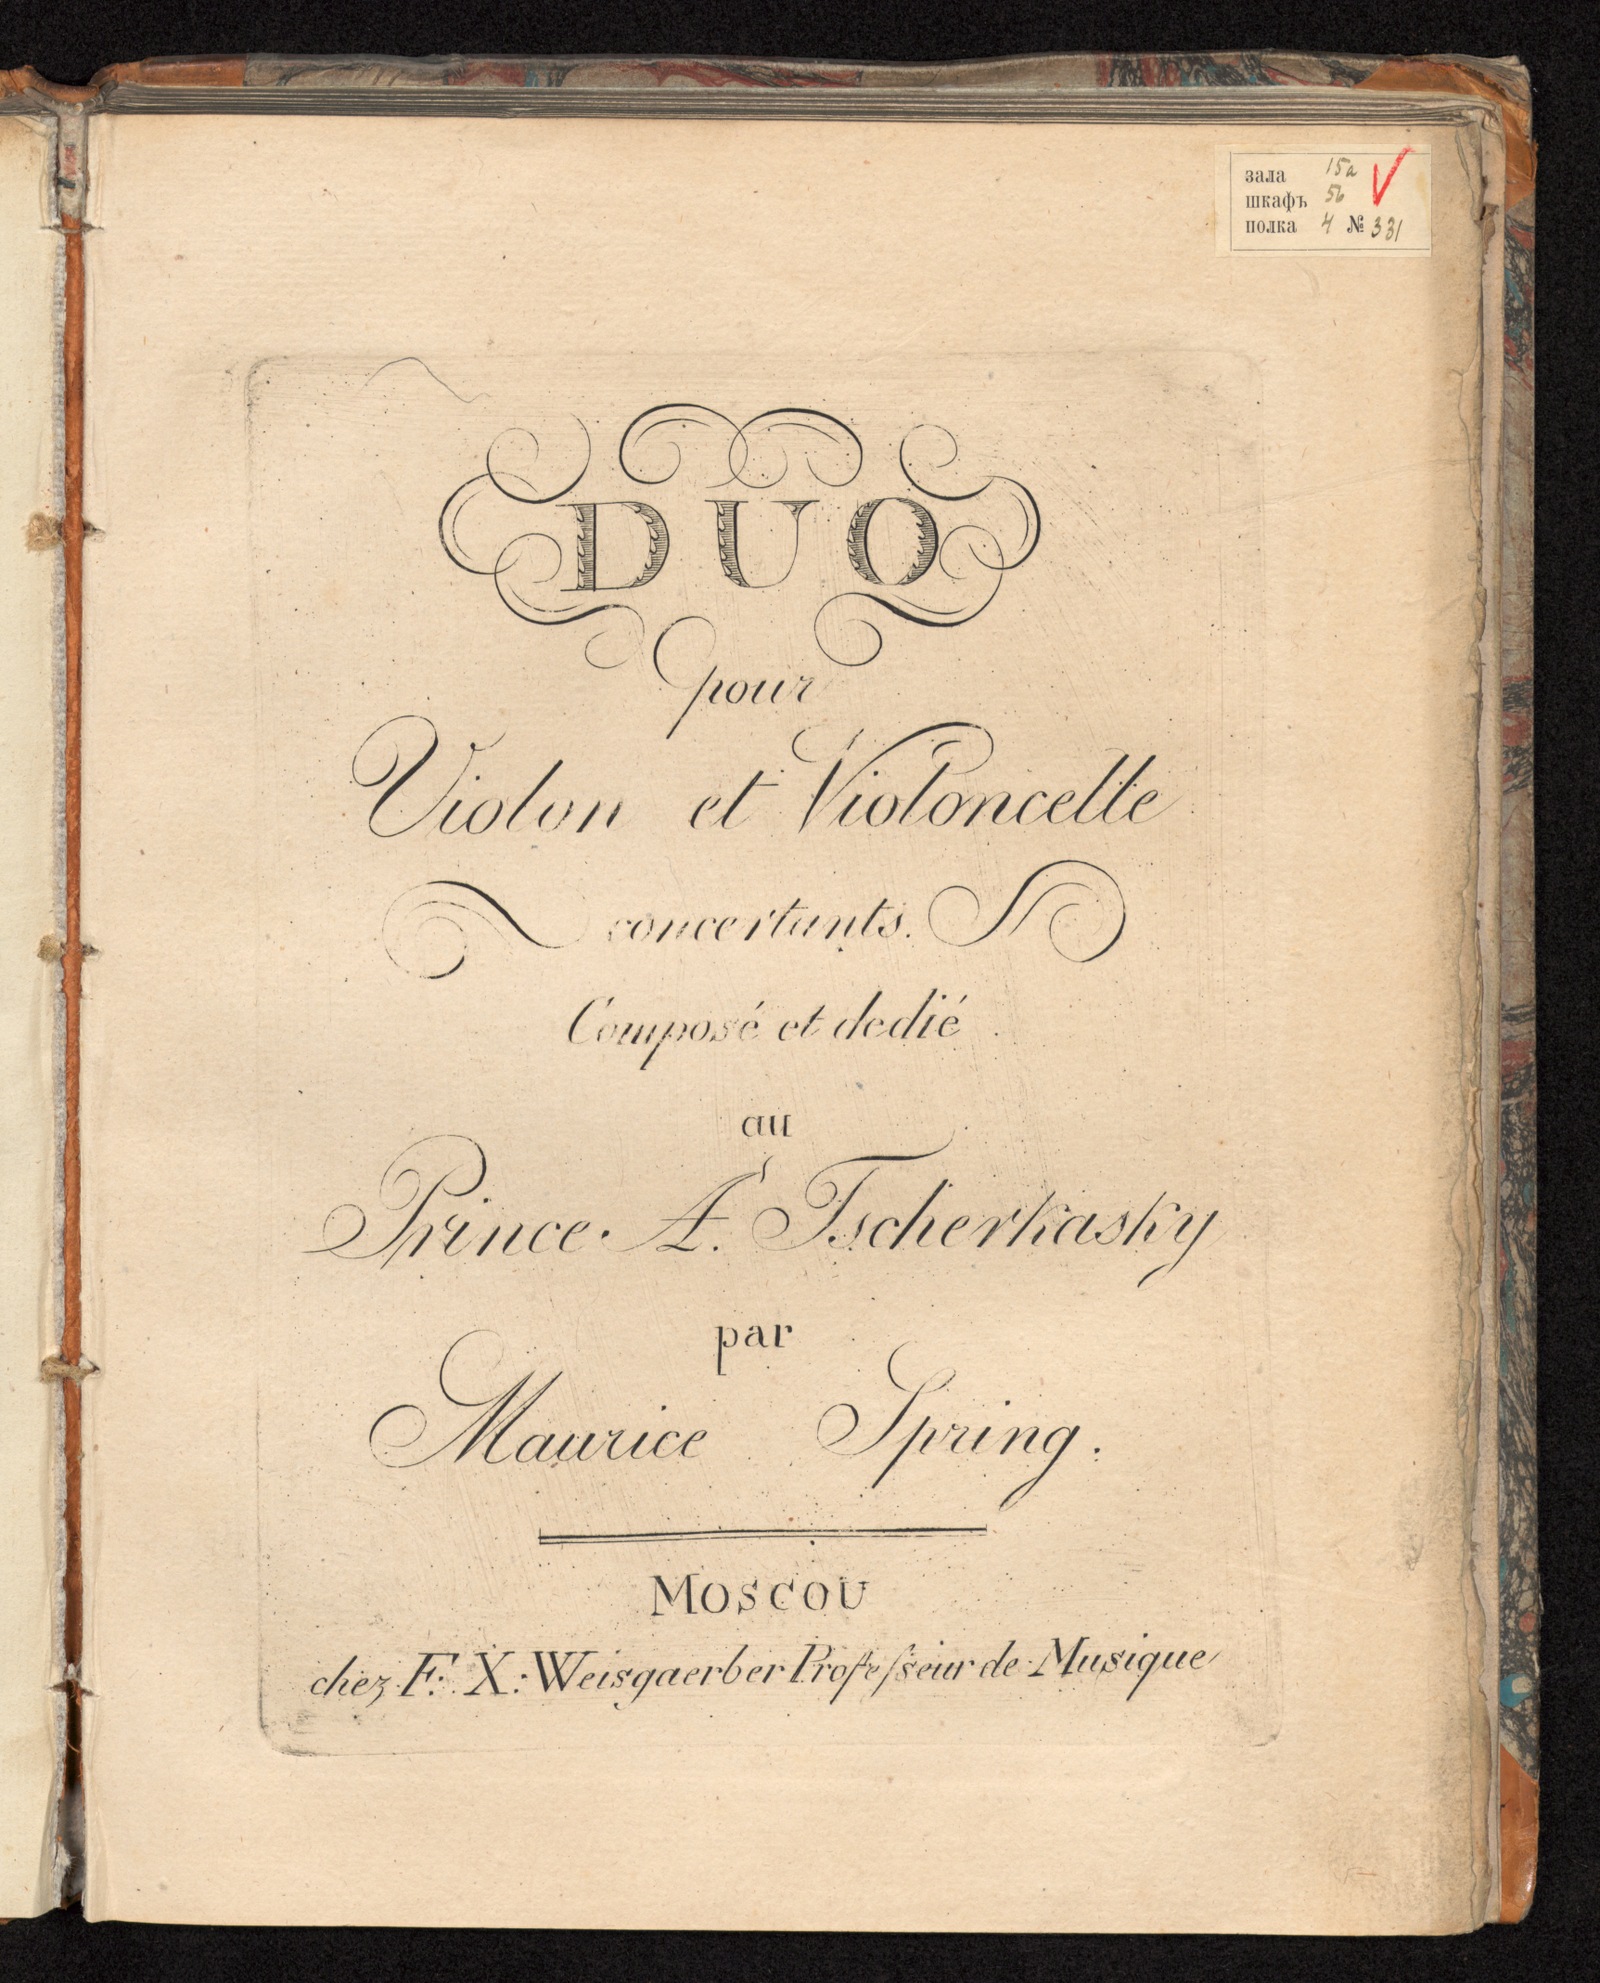 зала 15a
шкафъ 56
полка 4 № 331
DUO
pour
Violon et Violoncelle
concertants.
Composé et dedié
au
Prince. A. Tscherkasky
par
Maurice Spring.
MOSCOU
chez F. X: Weisgaerber Profeſseur de Musique